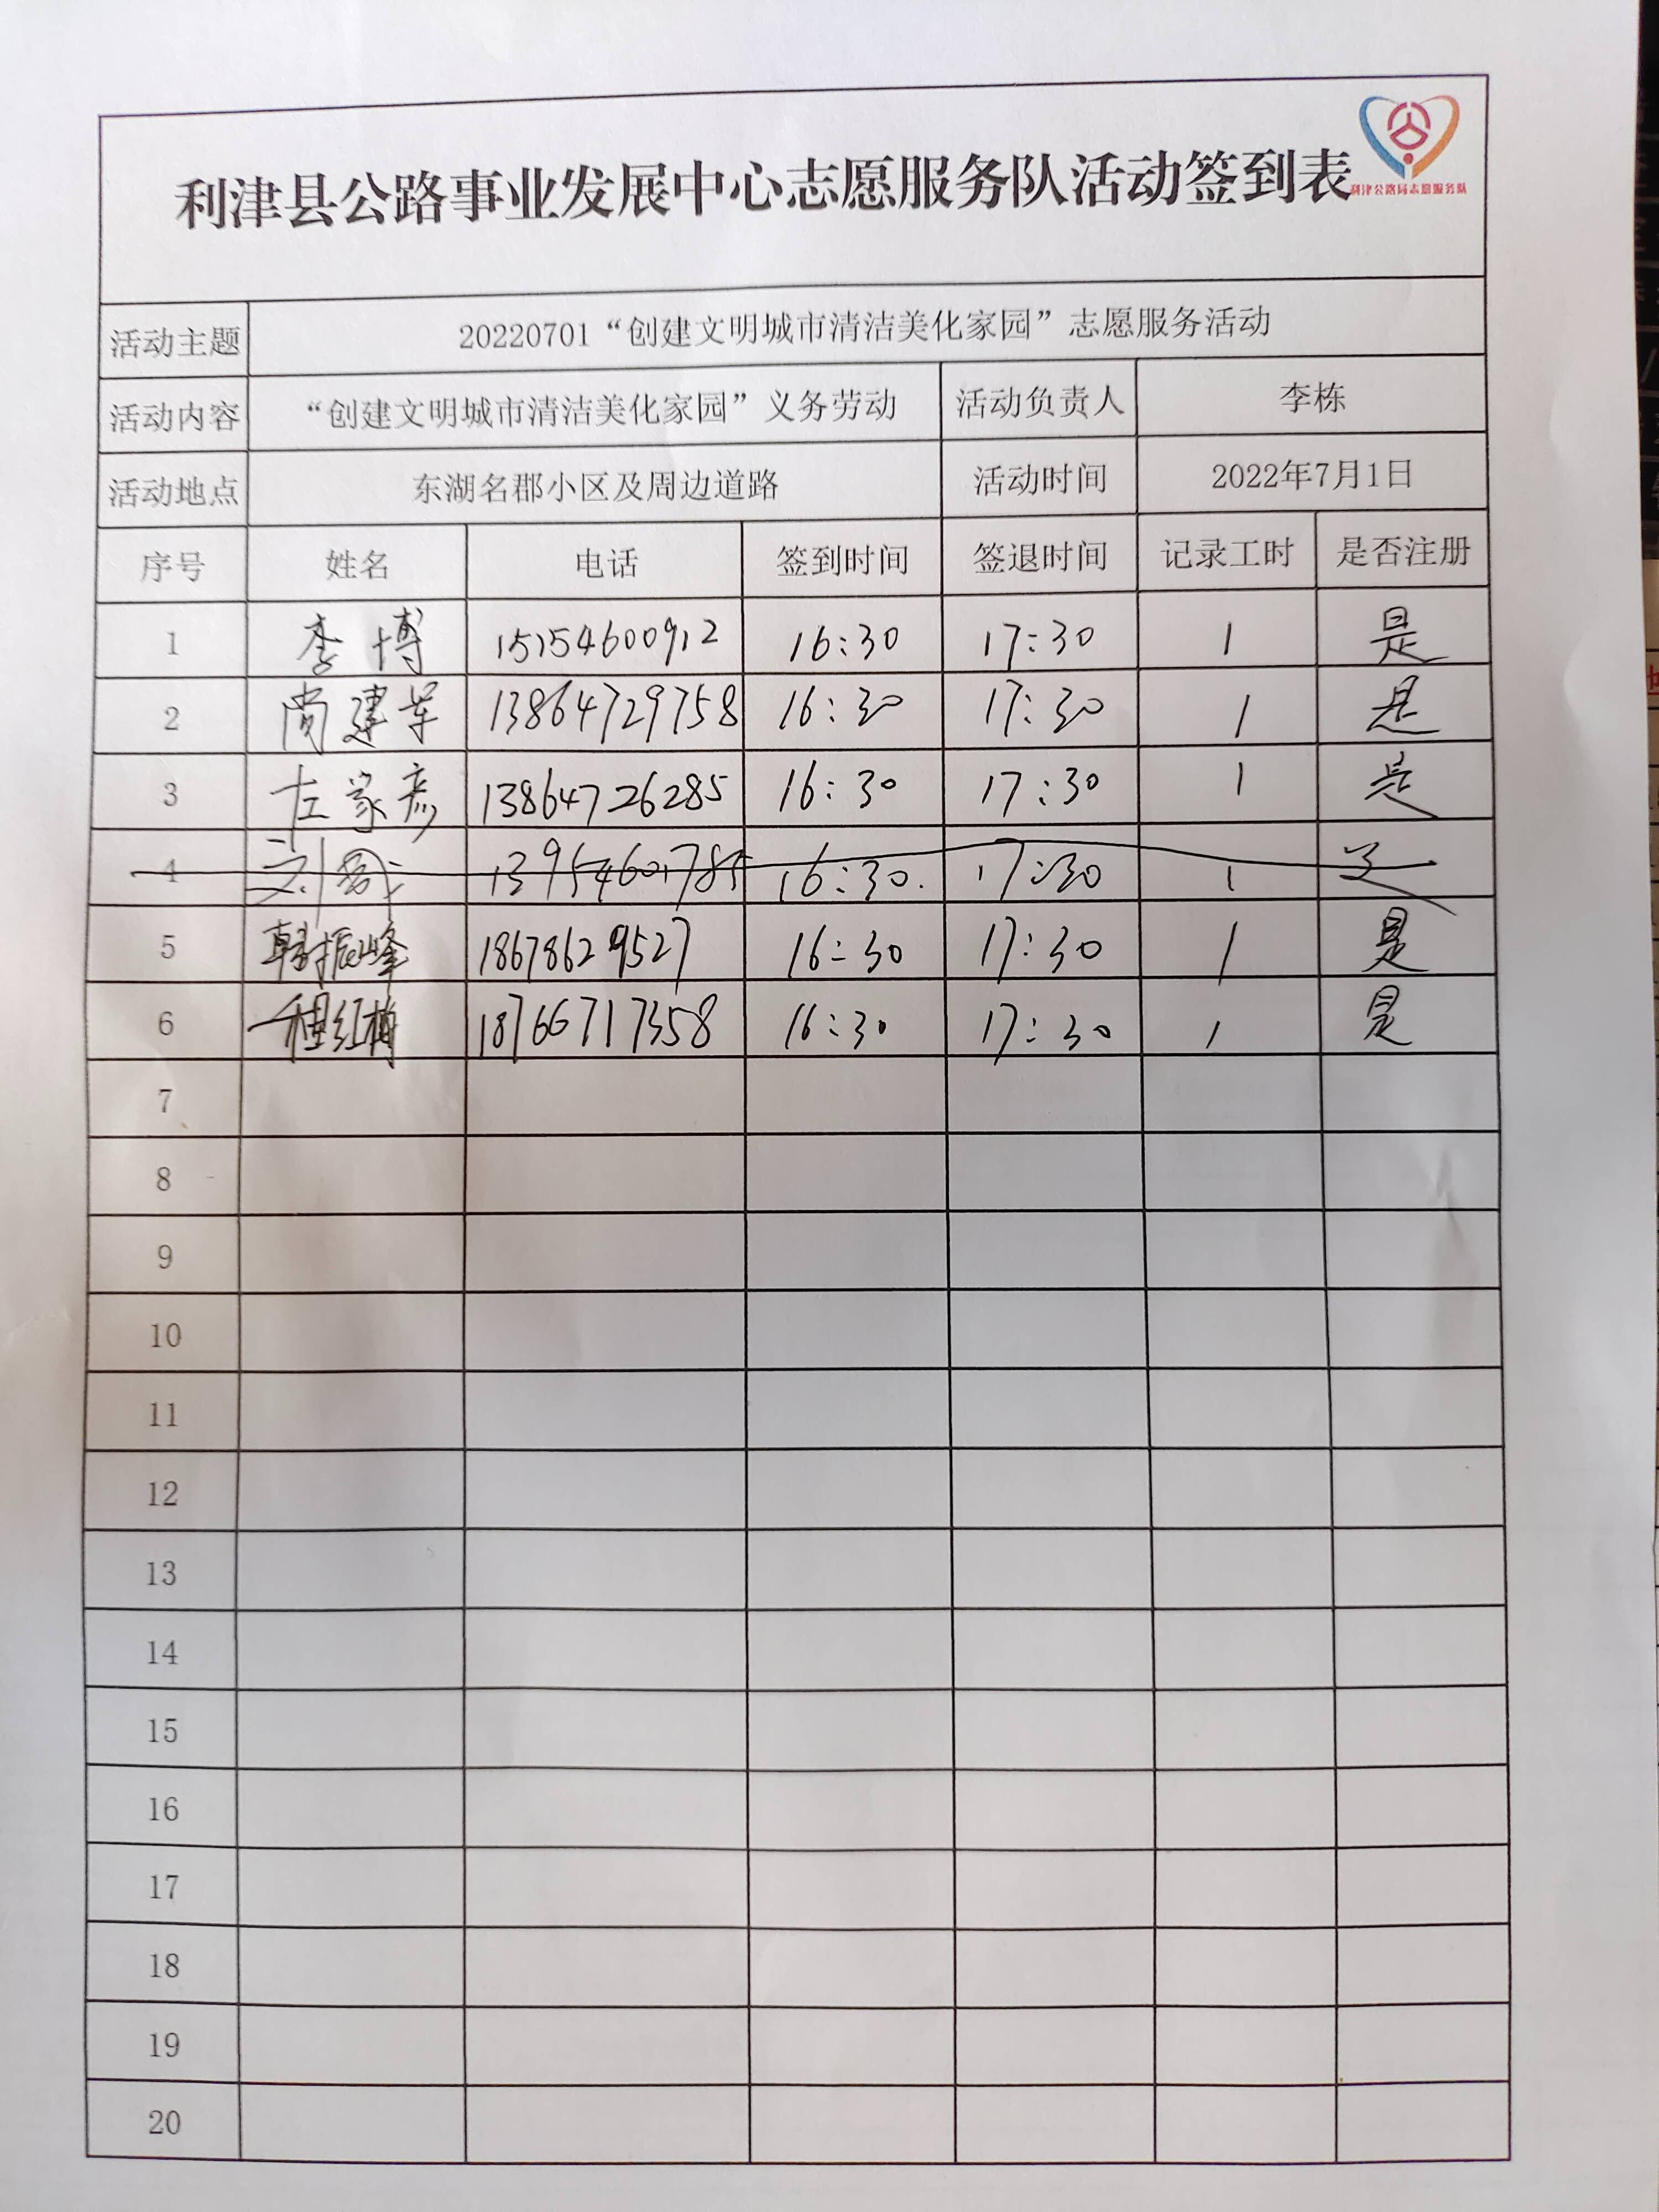 利津县公路事业发展中心志愿服务队活动签到表
利津公路局志愿服务队
活动主题 20220701“创建文明城市清洁美化家园”志愿服务活动
活动内容 “创建文明城市清洁美化家园”义务劳动 活动负责人 李栋
活动地点 东湖名郡小区及周边道路 活动时间 2022年7月1日
序号 姓名 电话 签到时间 签退时间 记录工时 是否注册
1 李博 15154600912 16:30 17:30 1 是
2 尚建军 13864729758 16:30 17:30 1 是
3 左家彦 13864726285 16:30 17:30 1 是
4 16:30 17:30 1 是
5 韩振峰 18678629527 16:30 17:30 1 是
6 程红梅 18766717358 16:30 17:30 1 是
7
8
9
10
11
12
13
14
15
16
17
18
19
20